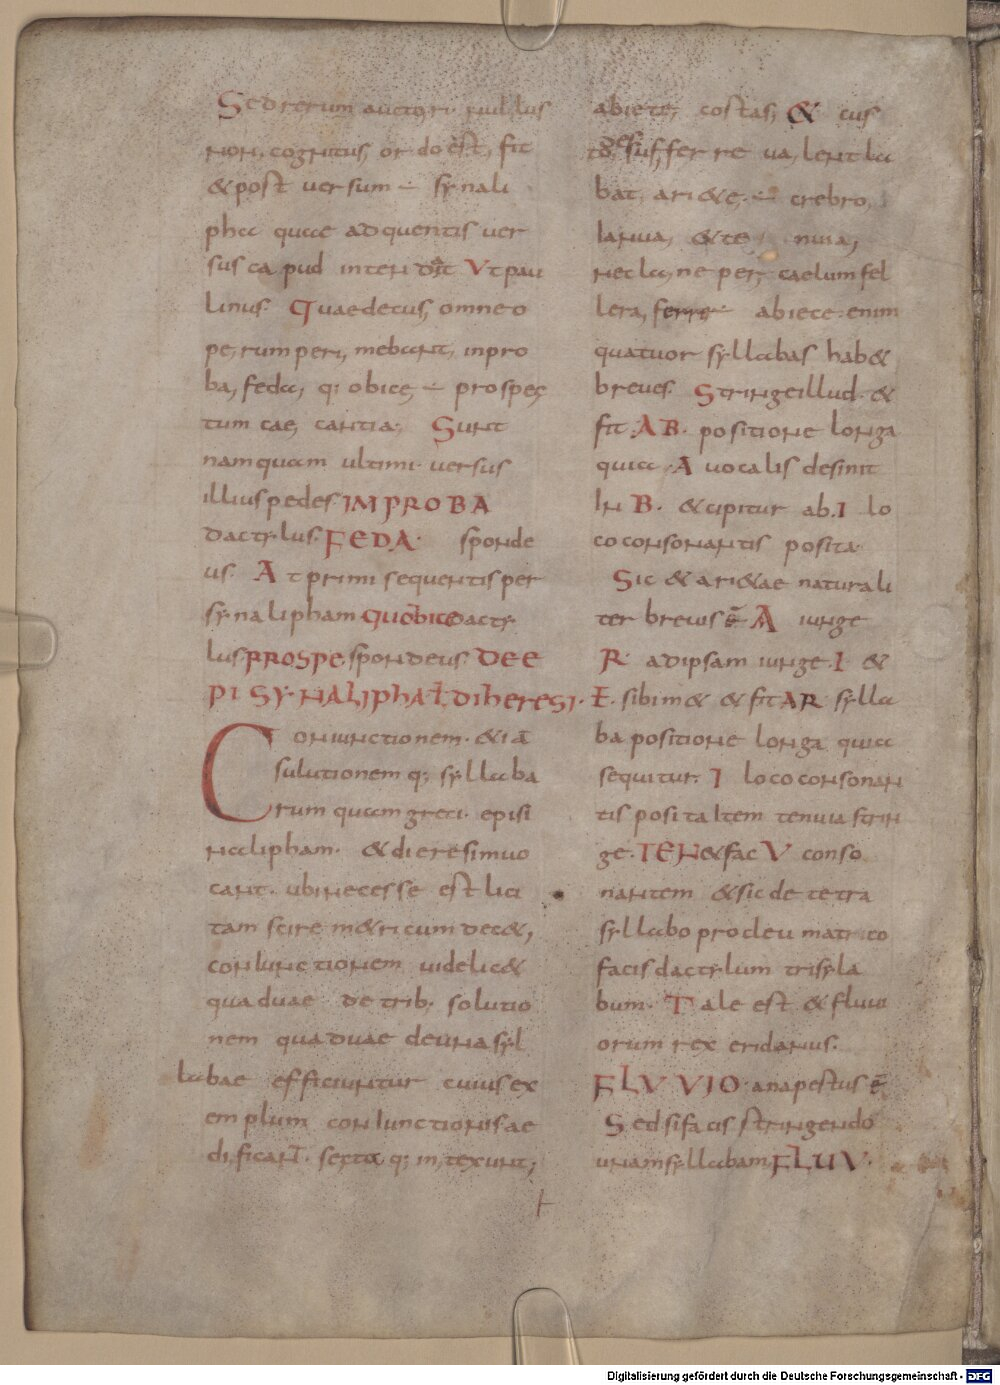 Sed rerum auctori nullus
non, cognitus, ordo est, fit
& post versum ÷ synali
phae quae ad quentis ver
sus caput intendit Ut pau
linus. Quae decus, omne o
pe, rum peri, mebant, in pro
ba, feda, q; obice, ÷ prospec
tum cae, cantia; Sunt
namquam ultimi versus
illius pedes IMPROBA
dactylus. FEDA. sponde
us. At primi sequentis per
synalipham quobice dacty
lus. PROSPE. spondeus. DE E
PISYNALIPHA ET diheresi.
Coniunctionem. &iā
sulutionem q; syllaba
rum quam greci. episi
nalipham. & dieresim uo
cant. ubi necesse est lici
tam scire m&ricum dec&,
coniunctionem uidelic&
qua duae de trib; solutio
nem qua duae de una syl
labae efficiuntur cuius ex
emplum coniunctionis ae
dificant. sextaq; in,texunt;
abiete, costas, & cus
todes sufferre ua, lent la
bat, ari&e, ÷ crebro,
ianua, & te nuia,
nec la, ne per, caelum fel
lera, ferre abiete. enim
quatuor syllabas hab&
breues. Stringe illud. &
fit. AB. positione longa
quia. A uocalis desinit
In B. & cipitur ab. I lo
co consonantis posita
Sic & ari&ae naturali
ter breuis ē A iunge
R. ad ipsam iunge. I &
E. sibim& & fit AR sylla
ba positione longa quia
sequitur. I loco consonan
tis posita Item tenuia strin
ge. TEN & fac V conso
nantem & sic de tetra
syllabo proceleumatico
facis dactylum trisyla
bum. Tale est & fluui
orum rex eridanus.
FLVVIO. anapestus ē
Sed si facis stringendo
unam syllabam FLUV.
Digitalisierung gefördert durch die Deutsche Forschungsgemeinschaft - DFG